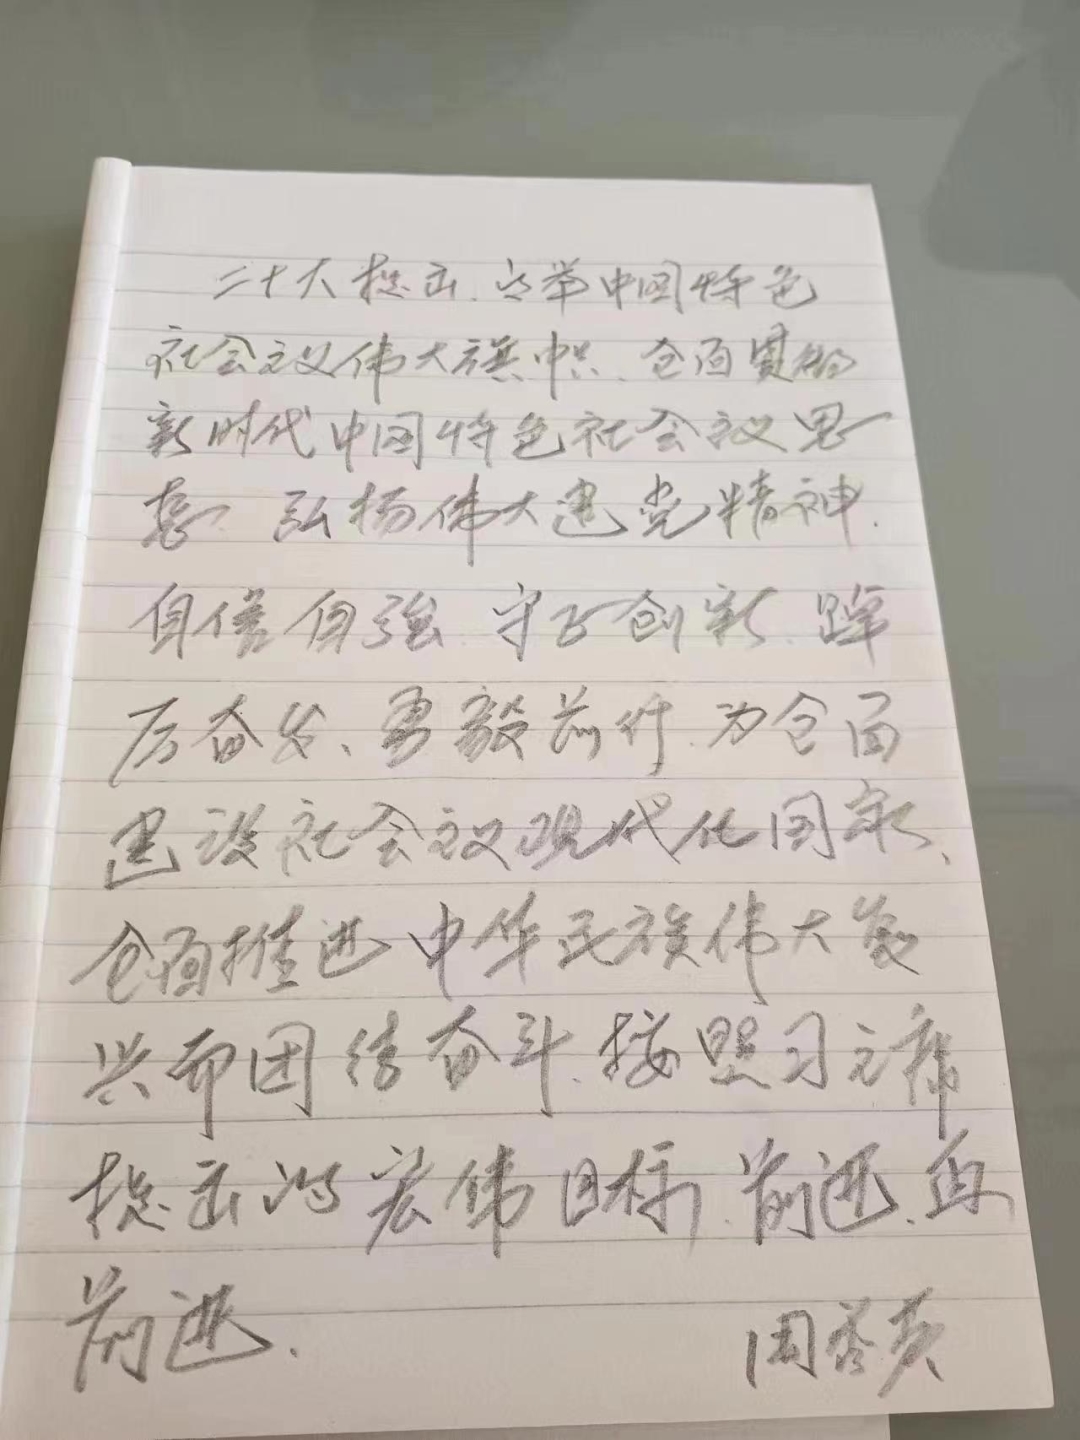 二十大提出.高举中国特色
社会主义伟大旗帜、全面贯彻
新时代中国特色社会主义思
想.弘扬伟大建党精神.
自信自强.守正创新.踔
厉奋发、勇毅前行.为全面
建设社会主义现代化国家、
全面推进中华民族伟大复
兴而团结奋斗.按照习主席
提出的宏伟目标.前进.再
前进.
周英